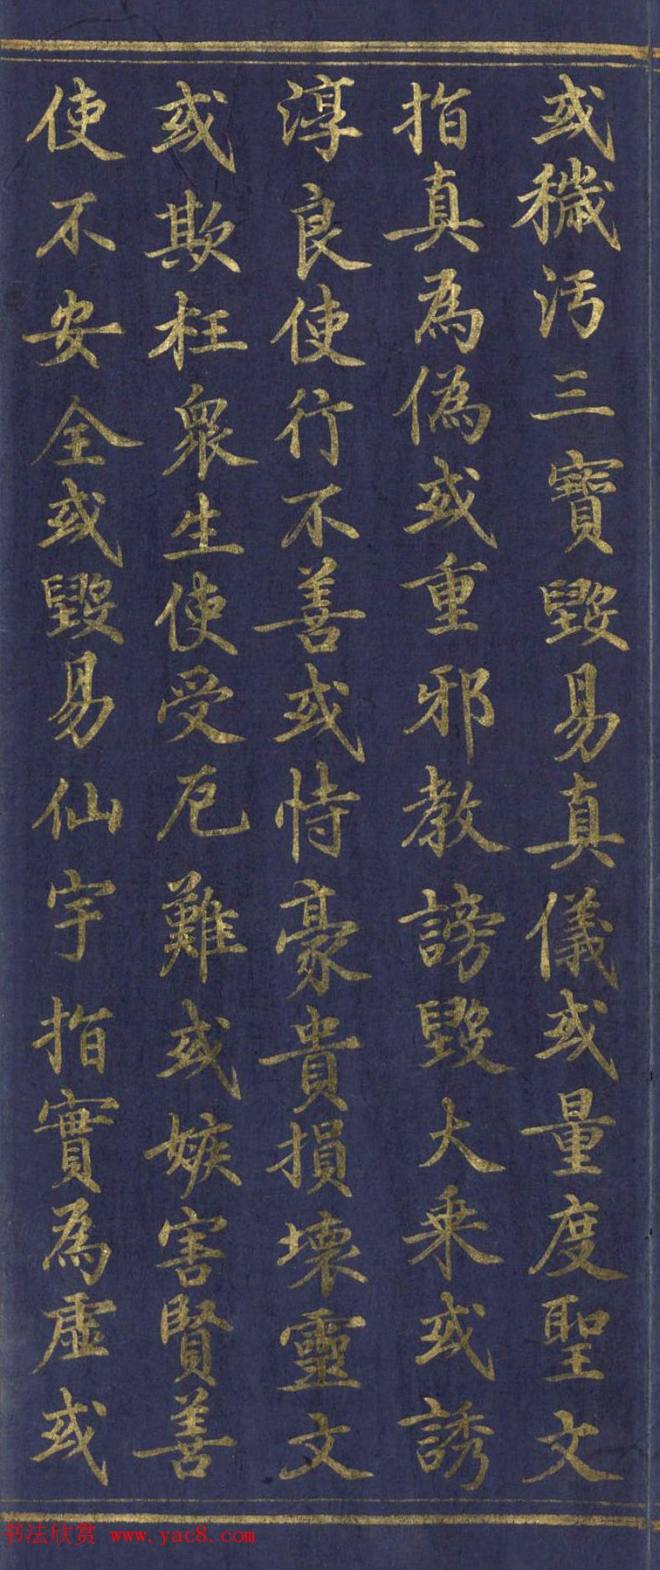 或穢汚三寶毀易真儀或量度聖文
指真為偽或重邪教謗毀大乗或誘
淳良使行不善或恃豪貴損壞靈文
或欺枉衆生使受厄難或嫉害賢善
使不安全或毀易仙宇指實為虛或
书法欣赏 www.yac8.com